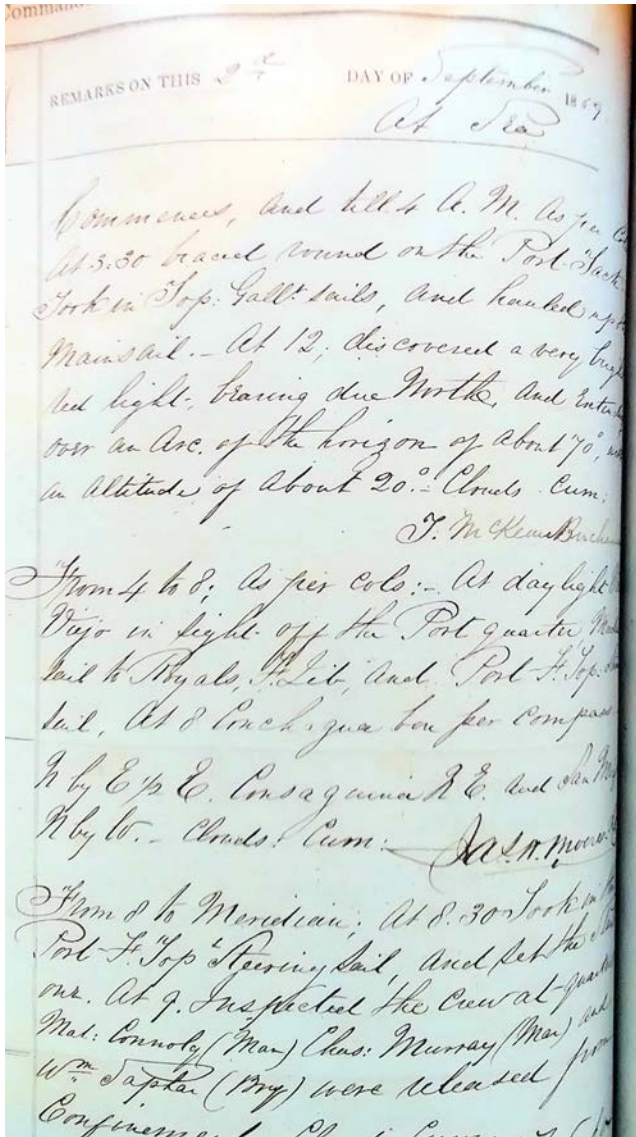 REMARKS ON THIS 2nd DAY OF September 1869
At Sea
Commences, and till 4 A. M. As per
At 3:30 braced round on the Port Tack
Took in Top: Gallt sails, and hauled up
Mainsail. - At 12; discovered a very
red light, bearing due North, and
over an Arc. of the horizon of about 70°,
an altitude of about 20°. - Clouds Cum:
T. McKean
From 4 to 8; As per cols: - At daylight
Viejo in sight off the Port quarter
sail to Royals, F. Jib, and Port F. Top.
sail, At 8 Conchagua bore per compass
N by E 1/2 E. Consaguina N E. and San
N by W. - Clouds: Cum: Jas. H. Moore
From 8 to Meridian; At 8.30 Took in
Port F. Top Steering sail, and set the
one. At 9. Inspected the Crew at quarters
Mat: Connoly (Man) Chas: Murray (Man) and
Wm (Boy) were released from
Confinement